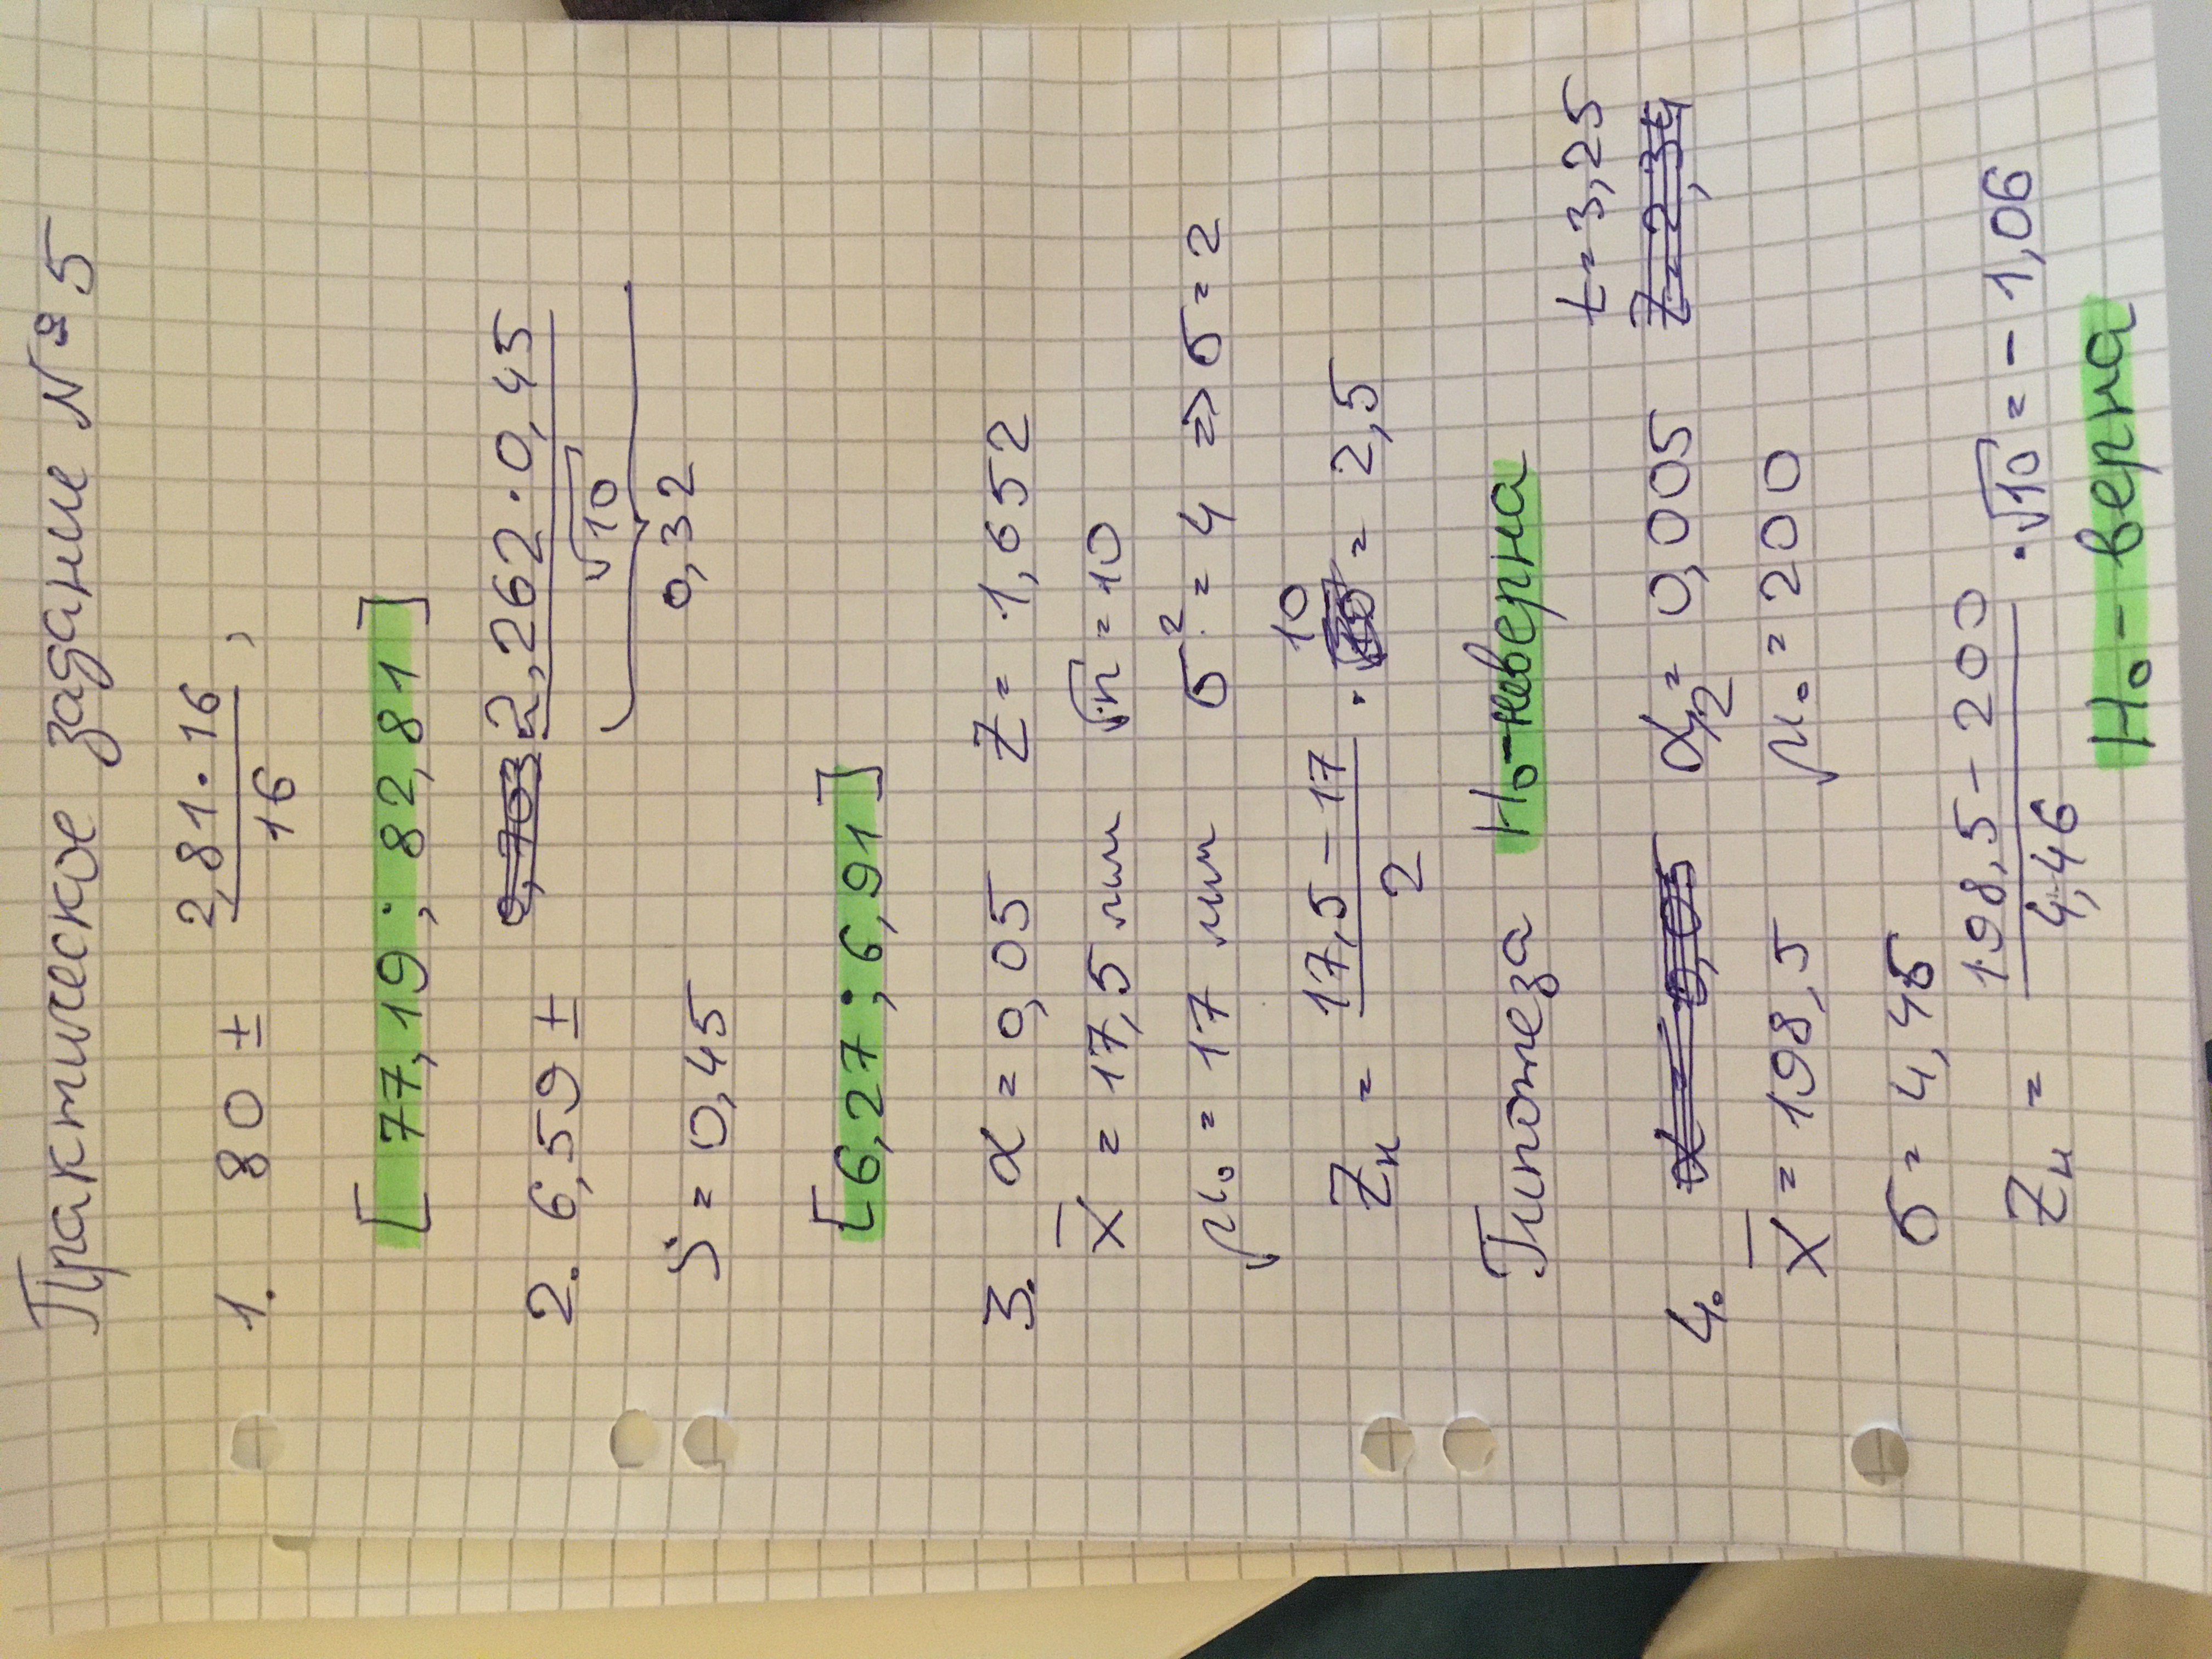 Практическое задание № 5
1. 80 ± 2,81·16 / 16 ;
[ 77,19 ; 82,81 ]
2. 6,59 ± 2,262·0,45 / √10
0,32
S = 0,45
[6,27 ; 6,91]
3. α = 0,05 Z = 1,652
X̅ = 17,5 мм √n = 10
μ₀ = 17 мм σ² = 4 => σ = 2
Zн = 17,5 − 17 / 2 · 10 = 2,5
Гипотеза H₀ - неверна
t = 3,25
4. α = 0,05 α/2 = 0,005 Z = 2,34
X̅ = 198,5 μ₀ = 200
σ = 4,46
Zн = 198,5 − 200 / 4,46 · √10 = − 1,06
H₀ - верна